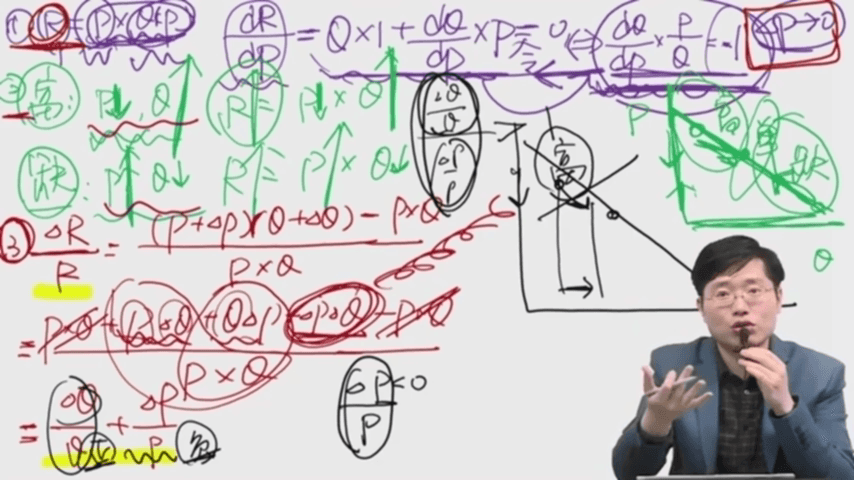 ① R = P×Q(P) dR/dP = Q×1 + dQ/dP ×P = 0 ⇔ dQ/dP × P/Q = -1 ΔP→0
② 富: P↓ Q↑ R↑ = P↓ × Q↑ ΔQ/Q / ΔP/P P 富 单 缺
缺: P↑ Q↓ R↑ = P↑ × Q↓ 富
③ ΔR/R = (P+ΔP)(Q+ΔQ) - P×Q / P×Q Q
= P×Q + PΔQ + QΔP + ΔPΔQ - P×Q / P×Q
= ΔQ/Q + ΔP/P ΔP/P <0